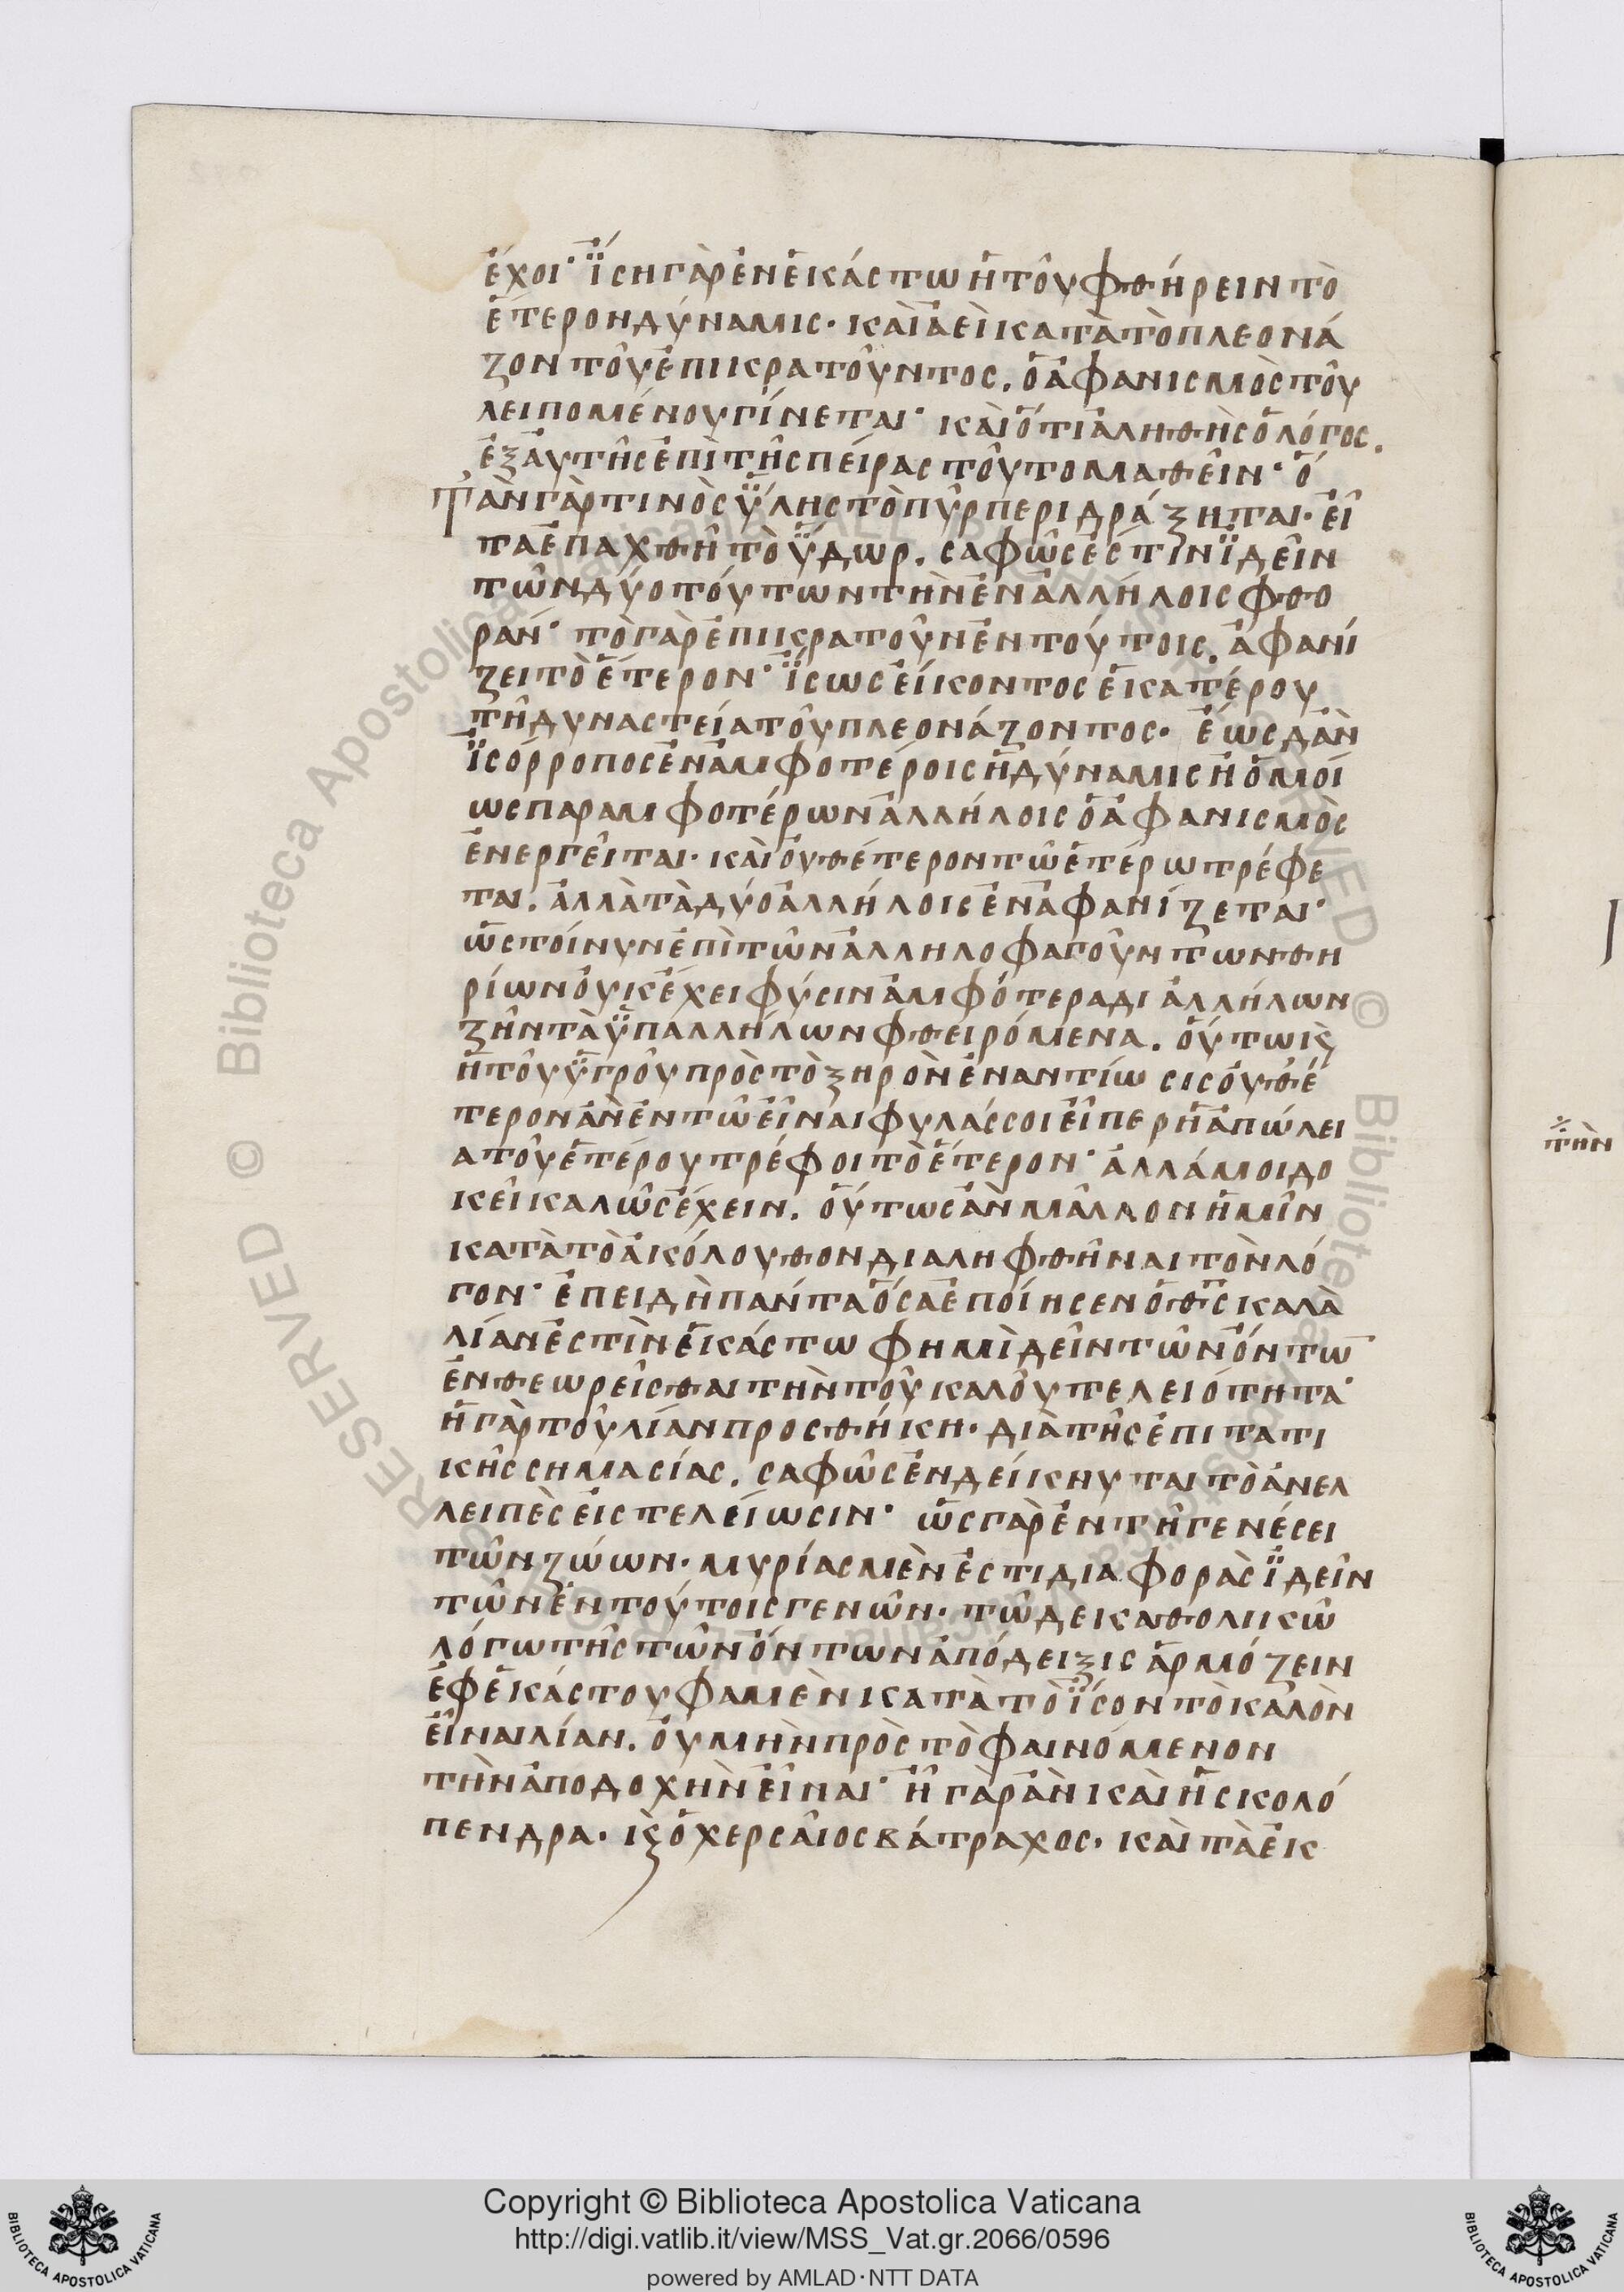 ἔχοι· ἴ̈ση γὰρ ἐν ἑκάστω ἡ τοῦ φθήρειν τὸ
ἕτερον δύναμις· καὶ ἀεὶ κατὰ τὸ πλεονά
ζον τοῦ ἐπικρατοῦντος. ὁ ἀφανισμὸς τοῦ
λειπομένου γίνεται· καὶ ὅτι ἀληθὴς ὁ λόγος.
ἐξ αὐτῆς ἐπὶ τῆς πείρας τοῦτο μαθεῖν· ὅ
τ' ἂν γάρ τινὸς ὕ̈λης τὸ πῦρ περιδράξηται· εἶ
τα ἐπαχθῆ τὸ ὕ̈δωρ. σαφῶς ἐστὶν ἰ̈δεῖν
τῶν δύο τούτων τὴν ἐν ἀλλήλοις φθο
ράν· τὸ γὰρ ἐπικρατοῦν ἐν τούτοις. ἀφανί
ζει τὸ ἕτερον· ἴ̈σως εἴκοντος ἑκατέρου
τῆ δυναστεία τοῦ πλεονάζοντος· ἕως δ' ἂν
ἰ̈σόρροπος ἐν ἀμφοτέροις ἡ δύναμις ἦ ὁμοί
ως παρ' ἀμφοτέρων ἀλλήλοις ὁ ἀφανισμὸς
ἐνεργεῖται· καὶ οὐθέτερον τῶ ἑτέρω τρέφε
ται. ἀλλὰ τὰ δύο ἀλλήλοις ἐναφανίζεται·
ὡς τοίνυν ἐπὶ τῶν ἀλληλοφαγούντων θη
ρίων οὐκ ἔχει φύσιν ἀμφότερα δι' ἀλλήλων
ζῆν τὰ ὑ̈π' ἀλλήλων φθειρόμενα. οὕτω κ(αὶ)
ἡ τοῦ ὑ̈γροῦ πρὸς τὸ ξηρὸν ἐναντίωσις οὐθέ
τερον ἂν ἐν τῶ εἶναι φυλάσσοι εἴπερ ἡ ἀπώλει
α τοῦ ἑτέρου τρέφοι τὸ ἕτερον· ἀλλά μοι δο
κεῖ καλῶς ἔχειν. οὕτως ἂν μᾶλλον ἡμῖν
κατὰ τὸ ἀκόλουθον διαληφθῆναι τὸν λό
γον· ἐπειδὴ πάντα ὅσα ἐποίησεν ὁ θ̅ς̅ καλὰ
λίαν ἐστὶν ἑκάστω φημὶ δεῖν τῶν ὄντω̅
ἐνθεωρεῖσθαι τὴν τοῦ καλοῦ τελειότητα·
ἡ γὰρ τοῦ λίαν προσθήκη· διὰ τῆς ἐπιτατι
κῆς σημασίας. σαφῶς ἐνδείκνυται τὸ ἀνελ
λειπὲς εἰς τελείωσιν· ὡς γὰρ ἐν τῆ γενέσει
τῶν ζώων· μυρίας μὲν ἐστι διαφορὰς ἰ̈δεῖν
τῶν ἐν τούτοις γενῶν· τῶ δε καθολικῶ
λόγω τῆς τῶν ὄντων ἀπόδειξις ἁρμόζειν
ἐφ' ἑκάστου φαμὲν κατὰ τὸ ἴ̈σον τὸ καλὸν
εἶναι λίαν. οὐ μὴν πρὸς τὸ φαινόμενον
τὴν ἀποδοχὴν εἶναι· ἦ γὰρ ἂν καὶ ἡ σκολό
πενδρα· κ(αὶ) ὁ χερσαῖος βάτραχος· καὶ τὰ ἐκ
τὴν
Copyright © Biblioteca Apostolica Vaticana
http://digi.vatlib.it/view/MSS_Vat.gr.2066/0596
powered by AMLAD · NTT DATA